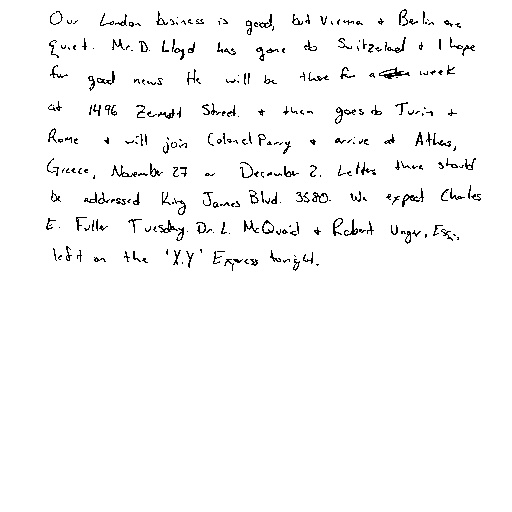 Our London business is good, but Vienna + Berlin are
quiet. Mr. D. Lloyd has gone to Switzerland + I hope
for good news. He will be there for a week
at 1496 Zermott Street. + then goes to Turin +
Rome + will join Colonel Parry + arrive at Athens,
Greece, November 27 or December 2. Letters there should
be addressed King James Blvd. 3580. We expect Charles
E. Fuller Tuesday. Dr. L. McQuaid + Robert Unger, Esq.,
left on the 'X.Y' Express tonight.